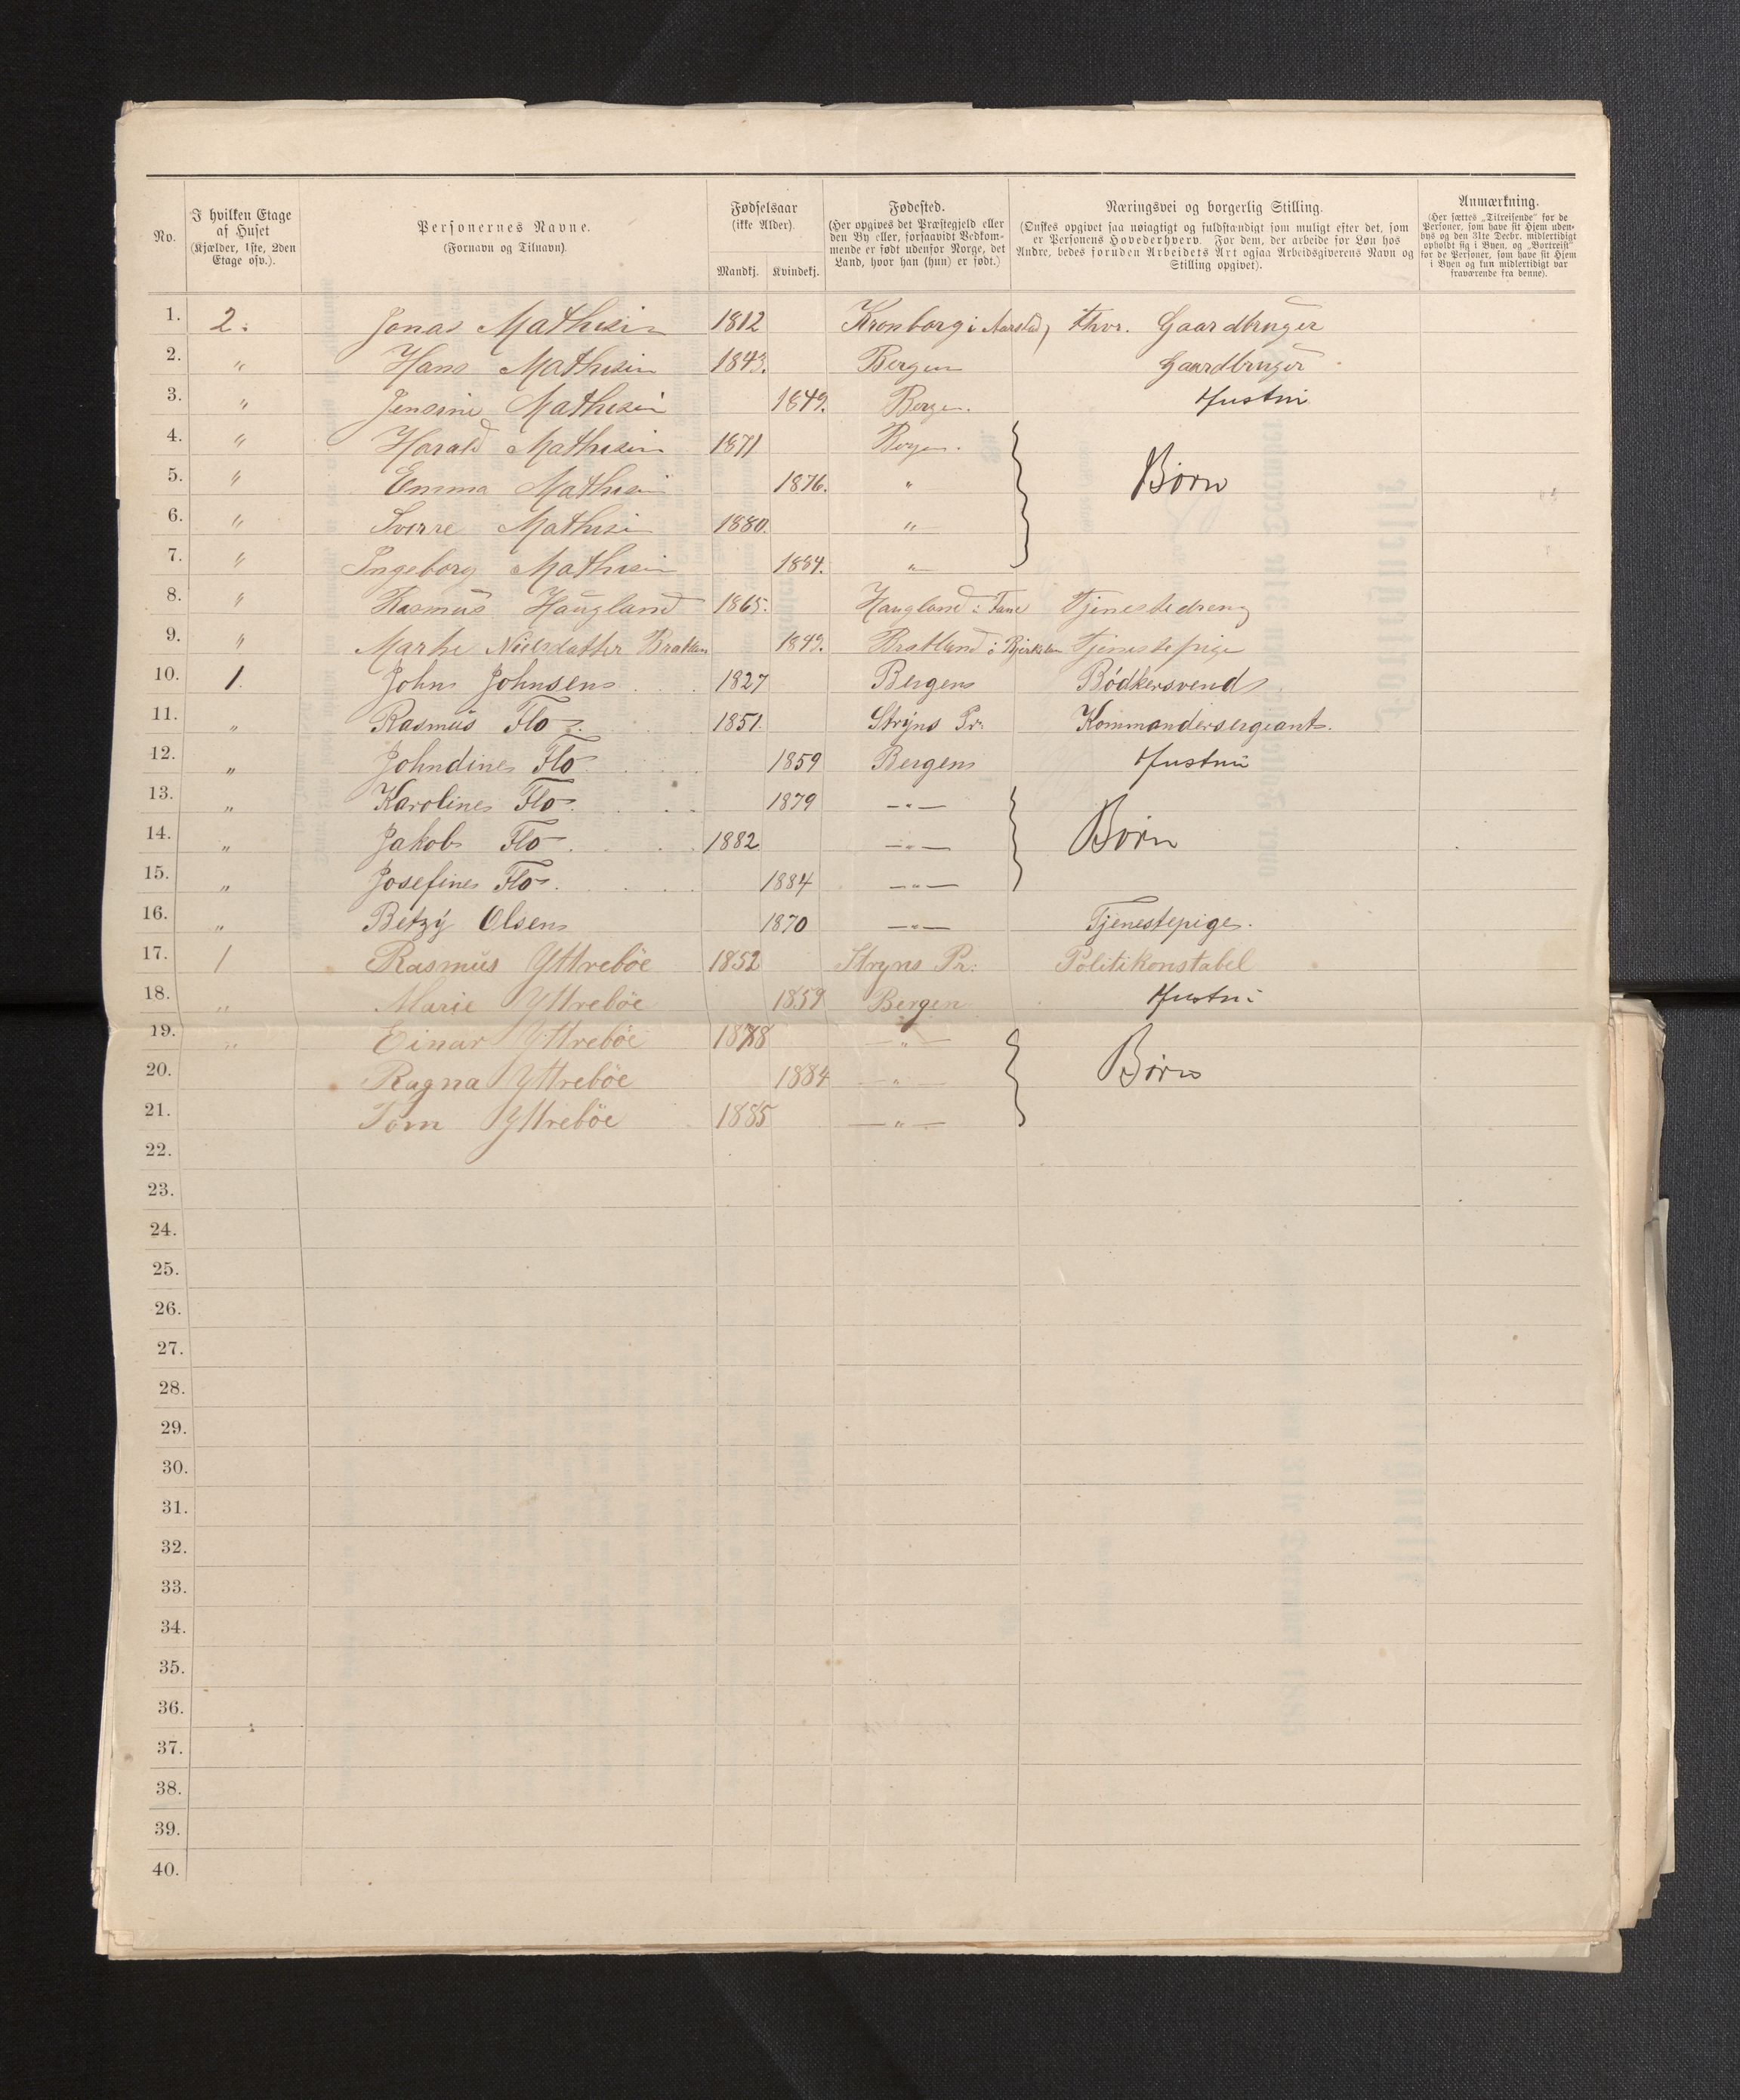 No.
I hvilken Etage af Huset (Kjælder, 1ste, 2den Etage osv.).
Personernes Navne. (Fornavn og Tilnavn).
Fødselsaar (ikke Alder). Mandkj. Kvindekj.
Fødested. (Her opgives det Præstegjeld eller den By eller, forsaavidt Vedkommende er født udenfor Norge, det Land, hvor han (hun) er født.)
Næringsvei og borgerlig Stilling. (Ønskes opgivet saa nøiagtigt og fuldstændigt som muligt efter det, som er Personens Hovederhverv. For dem, der arbeide for Løn hos Andre, bedes foruden Arbeidets Art ogsaa Arbeidsgiverens Navn og Stilling opgivet).
Anmærkning. (Her sættes „Tilreisende“ for de Personer, som have sit Hjem udenbys og den 31te Decbr. midlertidigt opholdt sig i Byen, og „Bortreist“ for de Personer, som have sit Hjem i Byen og kun midlertidigt var fraværende fra denne).
1. 2. Jonas Mathisen 1812 Kronborg i Aarstad, fhvr. Gaardbruger
2. " Hans Mathisen 1843. Bergen Gaardbruger
3. " Jensine Mathisen 1849. Bergen. Hustru
4. " Harald Mathisen 1871 Bergen.
5. " Emma Mathisen 1876. " Børn
6. " Sverre Mathisen 1880. "
7. " Ingeborg Mathisen 1884. "
8. " Rasmus Haugland 1865. Haugland i Fane Tjenestedreng
9. " Marthe Nielsdatter 1849. i Tjenestepige
10. 1. John Johnsen 1827 Bergen Bødkersvend
11. " Rasmus Flo 1851. Stryns Pr: Kommandersergeant.
12. " Johndine Flo 1859 Bergen Hustru
13. " Karoline Flo 1879 — " —
14. " Jakob Flo 1882 — " — Børn
15. " Josefine Flo 1884 — " —
16. " Betzy Olsen 1870 — " — Tjenestepige.
17. 1 Rasmus Yttrebøe 1852 Stryns Pr: Politikonstabel
18. " Marie Yttrebøe 1859 Bergen Hustru
19. " Einar Yttrebøe 1878 — " —
20. Ragna Yttrebøe 1884 — " — Børn
21. Yttrebøe 1885 — " —
22.
23.
24.
25.
26.
27.
28.
29.
30.
31.
32.
33.
34.
35.
36.
37.
38.
39.
40.